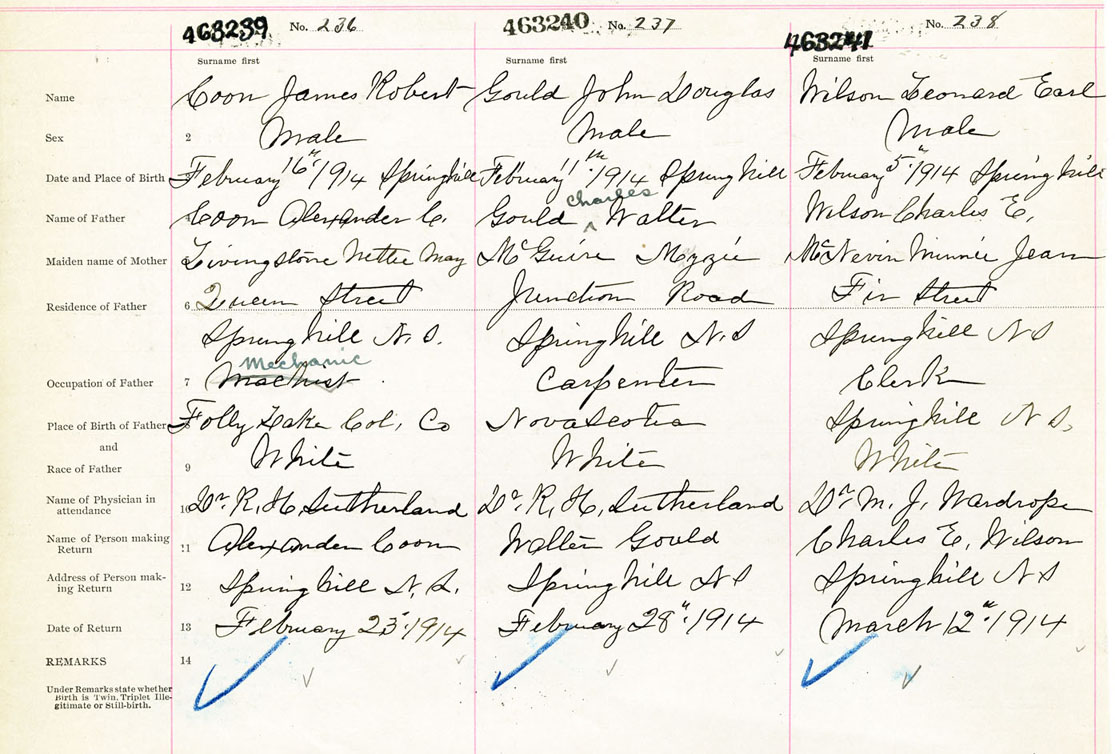 463239 No. 236 463240 No. 237 463241 No. 238
Surname first Surname first Surname first
Name Coon James Robert Gould John Douglas Wilson Leonard Earl
Sex 2 Male Male Male
Date and Place of Birth February 16th 1914 Springhill February 11th 1914 Springhill February 5th 1914 Springhill
Charles
Name of Father Coon Alexander C. Gould ^ Walter Wilson Charles E.
Maiden name of Mother Livingstone Nettie May McGuire Mzzie McNevin Minnie Jean
Residence of Father 6 Queen Street Junction Road Fir Street
Springhill N.S. Springhill N.S Springhill N S
Mechanic
Occupation of Father 7 Machist Carpenter Clerk
Place of Birth of Father Folly Lake Col. Co Nova Scotia Springhill N S.
and
Race of Father 9 White White White
Name of Physician in
attendance 10 Dr R. H. Sutherland Dr R. H. Sutherland Dr M. J. Wardrope
Name of Person making
Return 11 Alexander Coon Walter Gould Charles E. Wilson
Address of Person mak-
ing Return 12 Springhill N. S. Springhill N S Springhill N S
Date of Return 13 February 23" 1914 February 28" 1914 March 12" 1914
REMARKS 14
Under Remarks state whether
Birth is Twin, Triplet Ille-
gitimate or Still-birth.